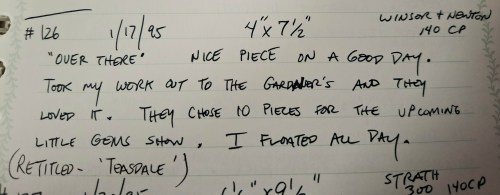 # 126 1/17/95 4" x 7 1/2" WINSOR + NEWTON 140 CP
"OVER THERE" NICE PIECE ON A GOOD DAY.
TOOK MY WORK OUT TO THE GARDNER'S AND THEY
LOVED IT. THEY CHOSE 10 PIECES FOR THE UPCOMING
LITTLE GEMS SHOW. I FLOATED ALL DAY.
(RETITLED - 'TEASDALE')
STRATH
300 140CP